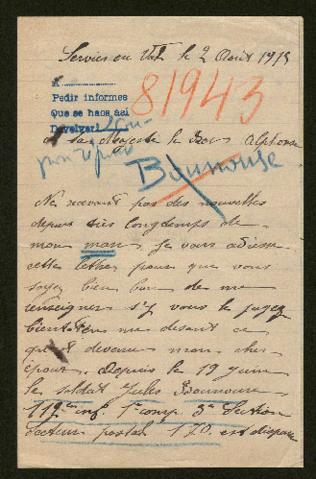 Servies ou Vt. le 2 Août 1915
A
Pedir informes
Que se haga así
Devolver
81943
a sa Majesté le Roi Alphonse
Bonnouse
Ne recevant pas des nouvelles
depuis très longdemps de
mon mari. Je vais adresse
cette lettre pour que vous
soyez bien bon de me
renseigner s'y vous le jugez
bientôt en me disant ce
qu'est devenu mon cher
époux. Depuis le 19 juin
le soldat Jules Bonnouse
112e inf 1e comp 3e Section
Secteur postal 170 est disparu